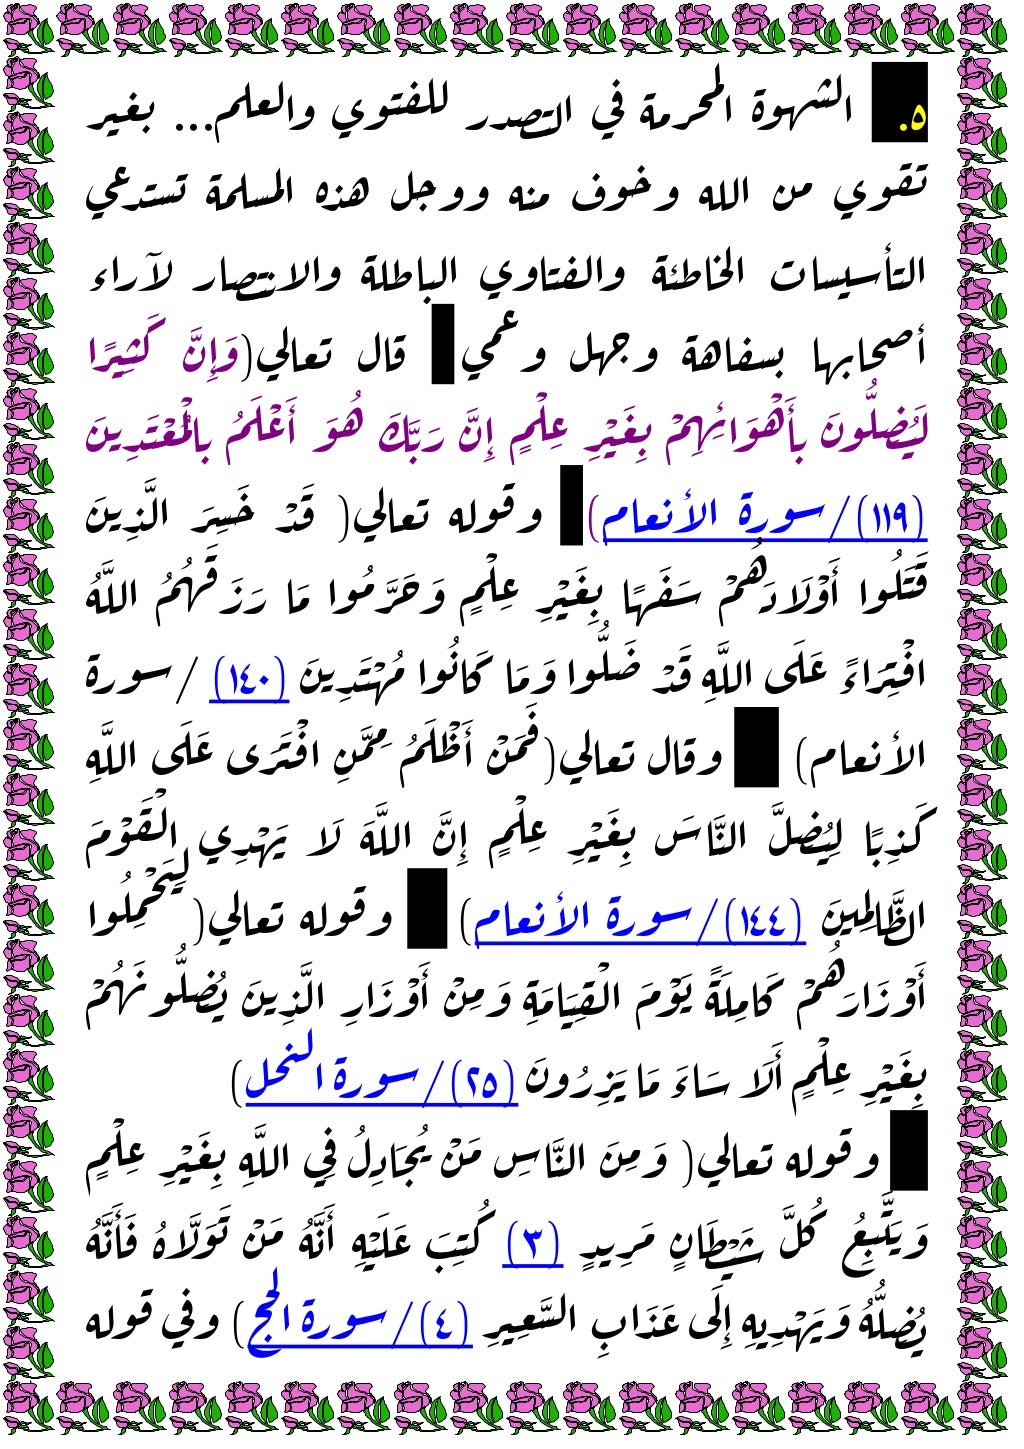 ٥. الشهوة المحرمة في التصدر للفتوي والعلم... بغير
تقوي من الله وخوف منه ووجل هذه المسلمة تستدعي
التأسيسات الخاطئة والفتاوي الباطلة والانتصار لآراء
أصحابها بسفاهة وجهل وعمي قال تعالي(وَإِنَّ كَثِيرًا
لَيُضِلُّونَ بِأَهْوَائِهِمْ بِغَيْرِ عِلْمٍ إِنَّ رَبَّكَ هُوَ أَعْلَمُ بِالْمُعْتَدِينَ
(١١٩)/سورة الأنعام) وقوله تعالي( قَدْ خَسِرَ الَّذِينَ
قَتَلُوا أَوْلَادَهُمْ سَفَهًا بِغَيْرِ عِلْمٍ وَحَرَّمُوا مَا رَزَقَهُمُ اللَّهُ
افْتِرَاءً عَلَى اللَّهِ قَدْ ضَلُّوا وَمَا كَانُوا مُهْتَدِينَ (١٤٠) /سورة
الأنعام) وقال تعالي(فَمَنْ أَظْلَمُ مِمَّنِ افْتَرَى عَلَى اللَّهِ
كَذِبًا لِيُضِلَّ النَّاسَ بِغَيْرِ عِلْمٍ إِنَّ اللَّهَ لَا يَهْدِي الْقَوْمَ
الظَّالِمِينَ (١٤٤)/سورة الأنعام) وقوله تعالي( لِيَحْمِلُوا
أَوْزَارَهُمْ كَامِلَةً يَوْمَ الْقِيَامَةِ وَمِنْ أَوْزَارِ الَّذِينَ يُضِلُّونَهُمْ
بِغَيْرِ عِلْمٍ أَلَا سَاءَ مَا يَزِرُونَ (٢٥)/سورة النحل)
وقوله تعالي( وَمِنَ النَّاسِ مَنْ يُجَادِلُ فِي اللَّهِ بِغَيْرِ عِلْمٍ
وَيَتَّبِعُ كُلَّ شَيْطَانٍ مَرِيدٍ (٣) كُتِبَ عَلَيْهِ أَنَّهُ مَنْ تَوَلَّاهُ فَأَنَّهُ
يُضِلُّهُ وَيَهْدِيهِ إِلَى عَذَابِ السَّعِيرِ (٤)/سورة الحج) وفي قوله